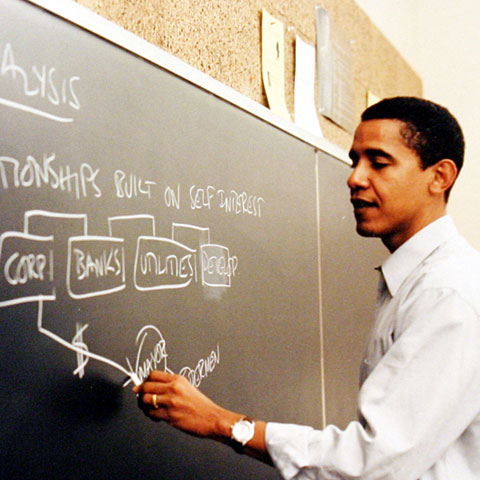 NALYSIS
TIONSHIPS BUILT ON SELF INTEREST
CORP BANKS UTILITIES DEVELOP
$
MAYOR